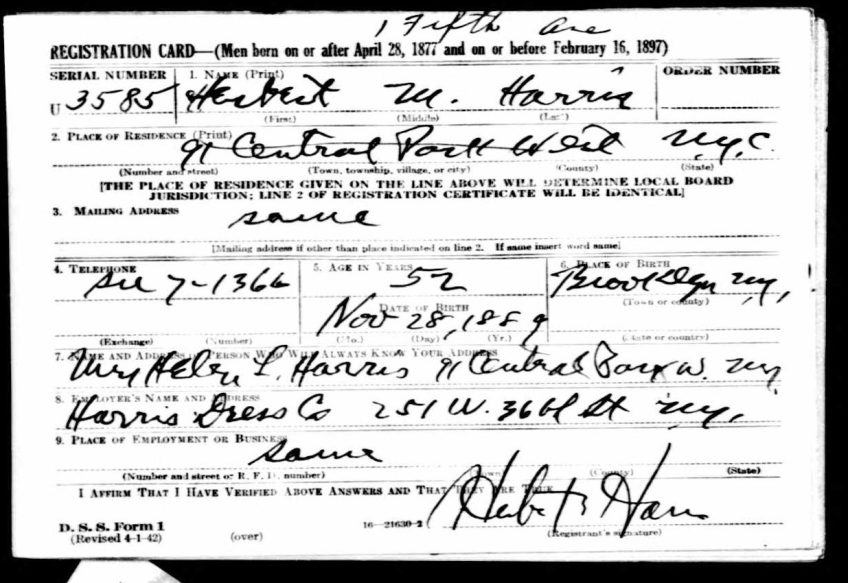 1 Fifth Ave
REGISTRATION CARD—(Men born on or after April 28, 1877 and on or before February 16, 1897)
SERIAL NUMBER 1. NAME (Print) ORDER NUMBER
U 3585 Herbert M. Harris
(First) (Middle) (Last)
2. PLACE OF RESIDENCE (Print)
91 Central Park West N.Y.C.
(Number and street) (Town, township, village, or city) (County) (State)
[THE PLACE OF RESIDENCE GIVEN ON THE LINE ABOVE WILL DETERMINE LOCAL BOARD
JURISDICTION; LINE 2 OF REGISTRATION CERTIFICATE WILL BE IDENTICAL]
3. MAILING ADDRESS
same
[Mailing address if other than place indicated on line 2. If same insert word same]
4. TELEPHONE 5. AGE IN YEARS 6. PLACE OF BIRTH
7-1366 52 Brooklyn N.Y.
DATE OF BIRTH (Town or county)
Nov 28, 1889
(Exchange) (Number) (Mo.) (Day) (Yr.) (State or country)
7. NAME AND ADDRESS OF PERSON WHO WILL ALWAYS KNOW YOUR ADDRESS
Mrs Helen L. Harris 91 Central Park W. NY
8. EMPLOYER'S NAME AND ADDRESS
Harris Dress Co 251 W. 36th St N.Y.
9. PLACE OF EMPLOYMENT OR BUSINESS
same
(Number and street or R. F. D. number) (Town) (County) (State)
I AFFIRM THAT I HAVE VERIFIED ABOVE ANSWERS AND THAT THEY ARE TRUE.
Herbert Harris
D. S. S. Form 1 16—21630-2
(Revised 4-1-42) (over) (Registrant's signature)